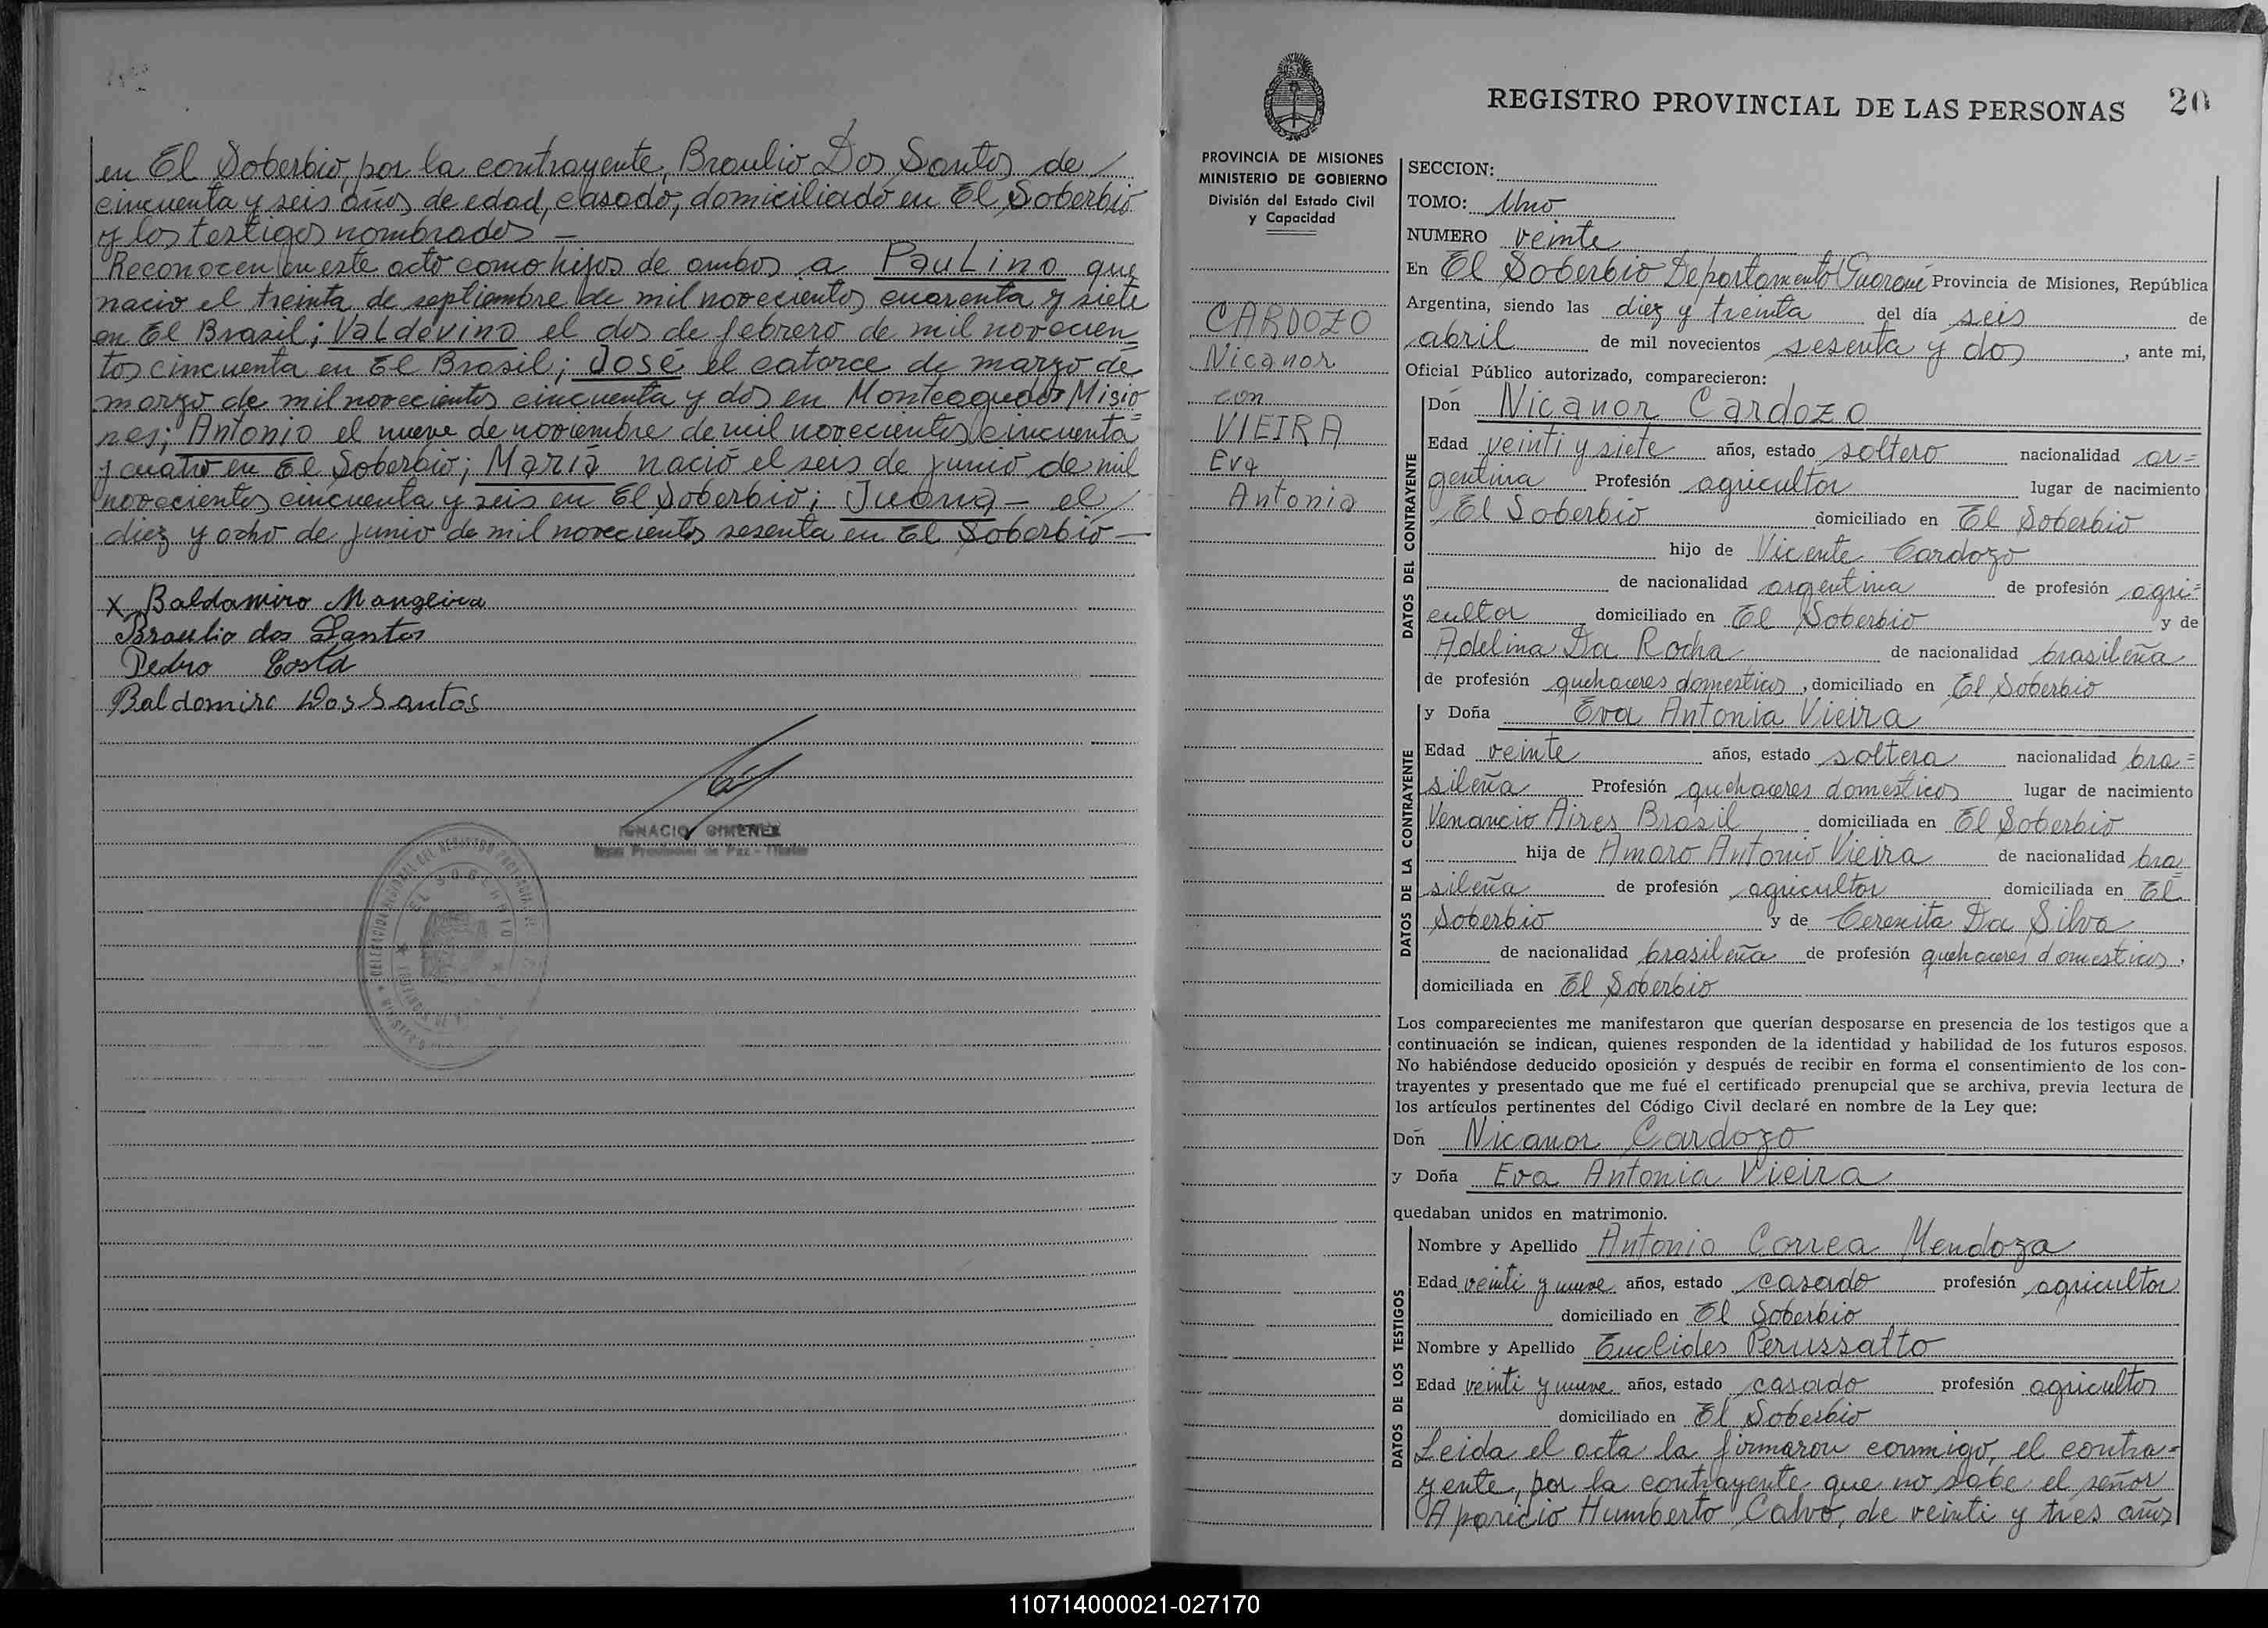 en El Soberbio, por la contrayente, Braulio Dos Santos de
cincuenta y seis años de edad, casado, domiciliado en El Soberbio
y los testigos nombrados —
Reconocen en este acto como hijos de ambos a Paulino que
nacio el treinta de septiembre de mil novecientos cuarenta y siete
en El Brasil; Valdevino el dos de febrero de mil novecien=
tos cincuenta en El Brasil; José el catorce de marzo de
marzo de mil novecientos cincuenta y dos en Monteagudo Misio=
nes; Antonio el nueve de noviembre de mil novecientos cincuenta
y cuatro en El Soberbio; Maria nació el seis de junio de mil
novecientos cincuenta y seis en El Soberbio; Juana — el
diez y ocho de junio de mil novecientos sesenta en El Soberbio —
X Baldamiro Mangeira
Braulio dos Santos
Pedro Costa
Baldomiro Dos Santos
IGNACIO GIMENEZ
EL SOBERBIO
REGISTRO PROVINCIAL DE LAS PERSONAS 20
PROVINCIA DE MISIONES
MINISTERIO DE GOBIERNO
División del Estado Civil
y Capacidad
CARDOZO
Nicanor
con
VIEIRA
Eva
Antonia
SECCION:
TOMO: Uno
NUMERO veinte
En El Soberbio Departamento Guaraní Provincia de Misiones, República
Argentina, siendo las diez y treinta del día seis de
abril de mil novecientos sesenta y dos, ante mi,
Oficial Público autorizado, comparecieron:
DATOS DEL CONTRAYENTE
Don Nicanor Cardozo
Edad veinti y siete años, estado soltero nacionalidad ar=
gentina Profesión agricultor lugar de nacimiento
El Soberbio domiciliado en El Soberbio
hijo de Vicente Cardozo
de nacionalidad argentina de profesión agri=
cultor domiciliado en El Soberbio y de
Adelina Da Rocha de nacionalidad brasileña
de profesión quehaceres domesticos, domiciliado en El Soberbio
DATOS DE LA CONTRAYENTE
y Doña Eva Antonia Vieira
Edad veinte años, estado soltera nacionalidad bra=
sileña Profesión quehaceres domesticos lugar de nacimiento
Venancio Aires Brasil domiciliada en El Soberbio
hija de Amaro Antonio Vieira de nacionalidad bra=
sileña de profesión agricultor domiciliada en El
Soberbio y de Cerenita Da Silva
de nacionalidad brasileña de profesión quehaceres domesticos,
domiciliada en El Soberbio
Los comparecientes me manifestaron que querían desposarse en presencia de los testigos que a
continuación se indican, quienes responden de la identidad y habilidad de los futuros esposos.
No habiéndose deducido oposición y después de recibir en forma el consentimiento de los con-
trayentes y presentado que me fué el certificado prenupcial que se archiva, previa lectura de
los artículos pertinentes del Código Civil declaré en nombre de la Ley que:
Don Nicanor Cardozo
y Doña Eva Antonia Vieira
quedaban unidos en matrimonio.
DATOS DE LOS TESTIGOS
Nombre y Apellido Antonio Correa Mendoza
Edad veinti y nueve años, estado casado profesión agricultor
domiciliado en El Soberbio
Nombre y Apellido Euclides Perussatto
Edad veinti y nueve años, estado casado profesión agricultor
domiciliado en El Soberbio
Leida el acta la firmaron conmigo, el contra=
yente, por la contrayente que no sabe el señor
Aparicio Humberto Calvo, de veinti y tres años
110714000021-027170